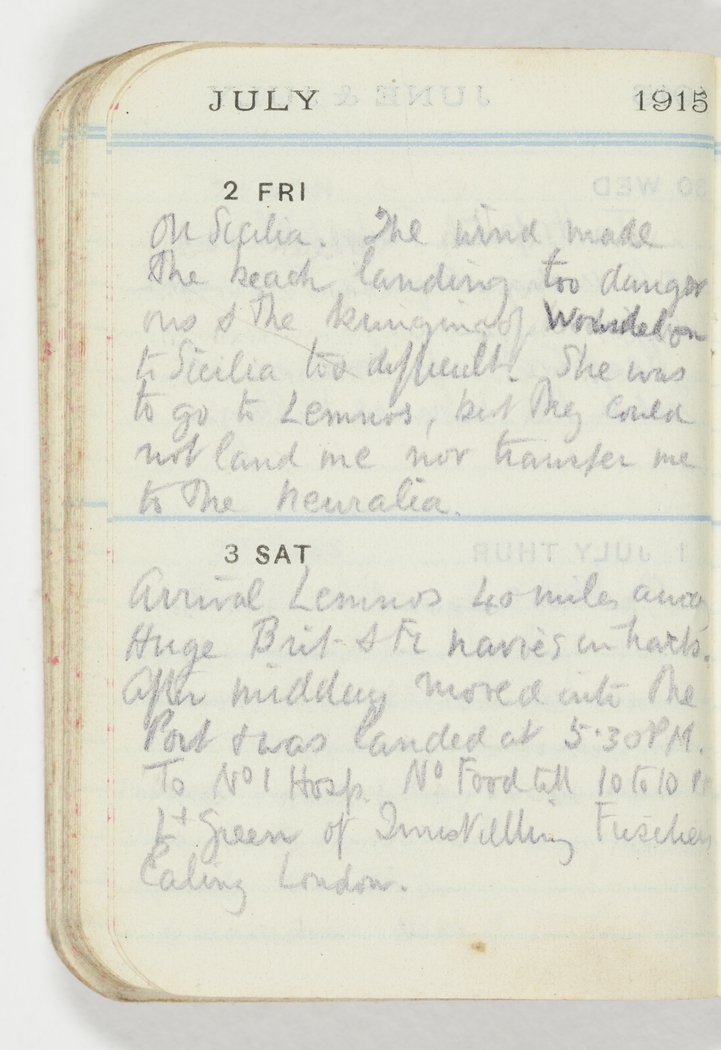 JULY 1915
2 FRI
On Sicilia. The wind made
the beach landing too danger
ous & the bringing of Wounded on
to Sicilia too difficult. She was
to go to Lemnos, but they could
not land me nor transfer me
to the Neuralia.
3 SAT
Arrival Lemnos 40 miles away
Huge Brit & Fr navies in harb.
After midday moved into the
Port & was landed at 5.30 PM.
To No 1 Hosp. No Food till 10 to 10 PM
Lt Green of Fusiliers
Ealing London.